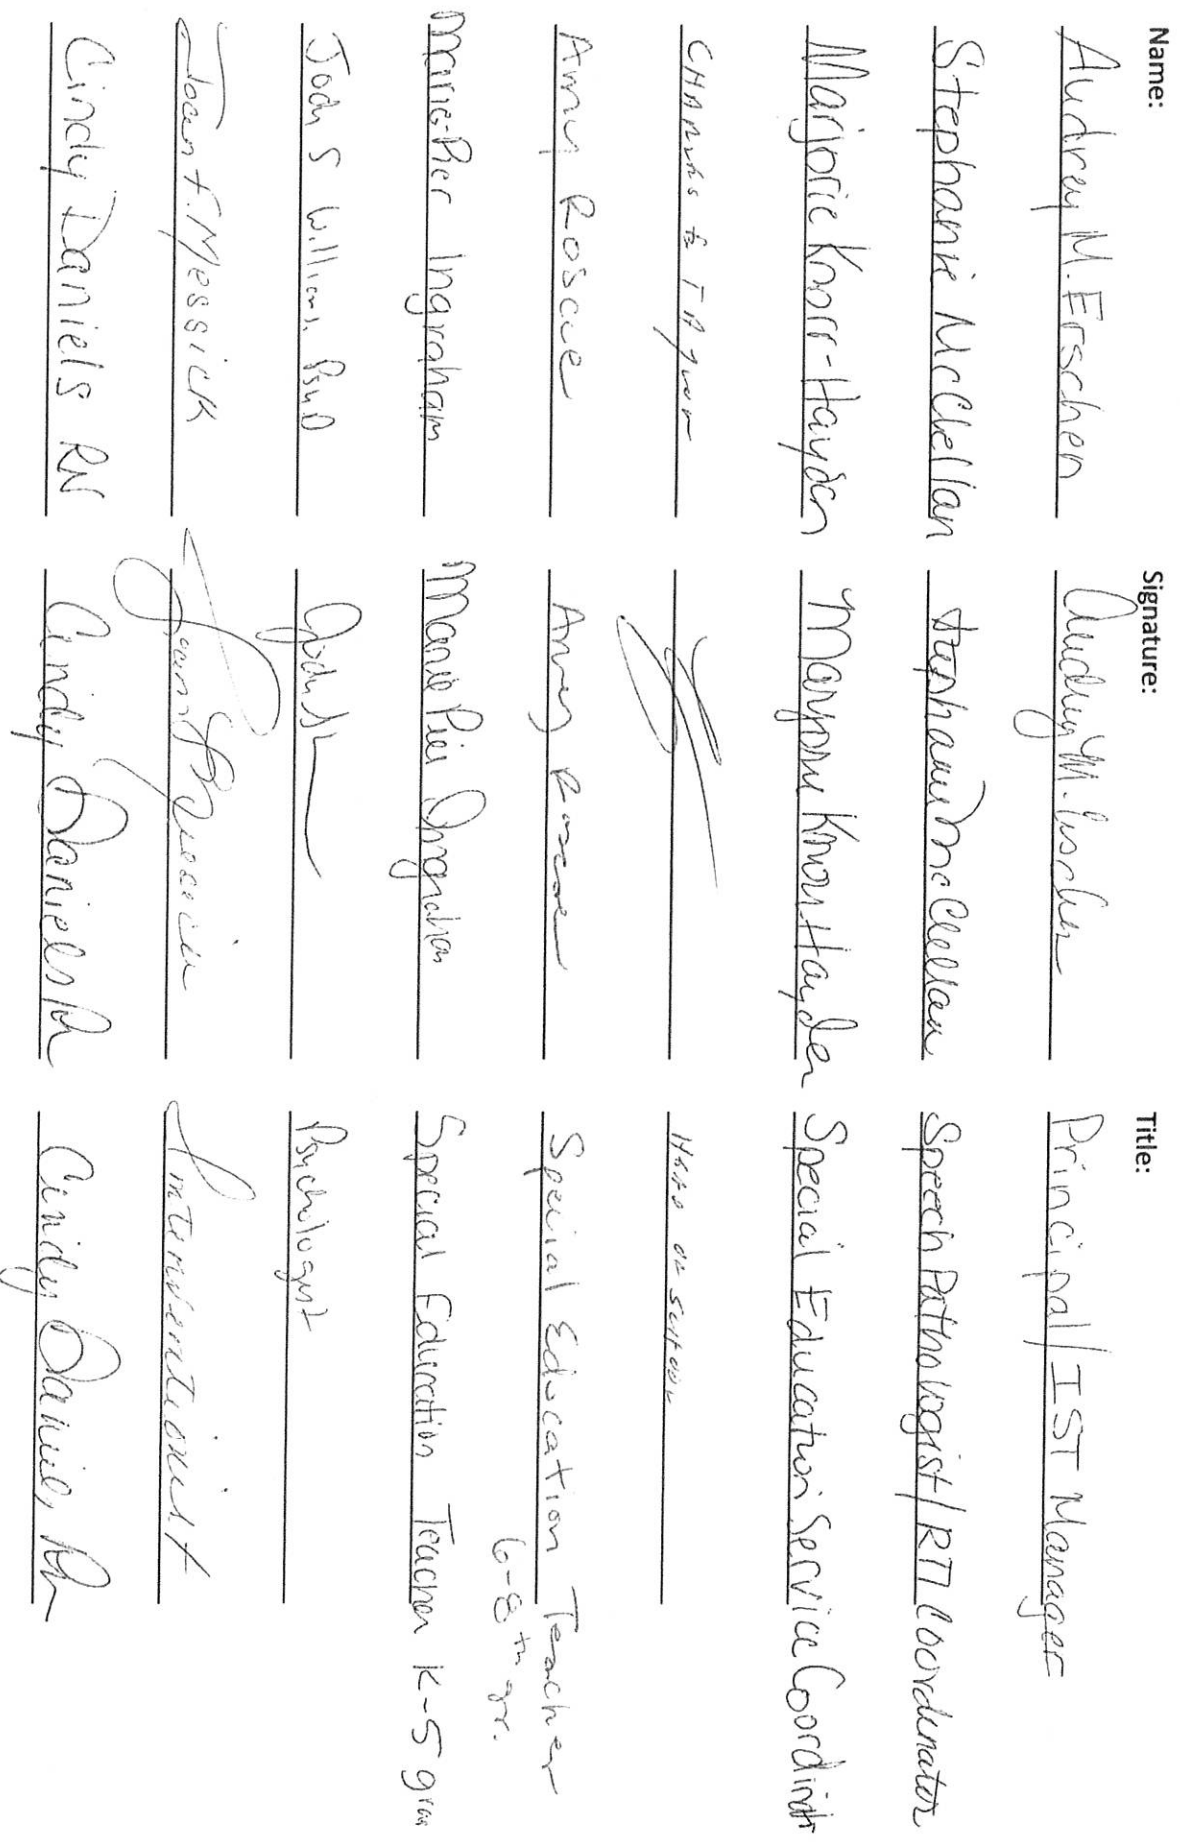 Name: Signature: Title:
Audrey M. Erschen Audrey M. Erschen Principal/IST Manager
Stephanie McClellan Stephanie McClellan Speech Pathologist/RTI Coordinator
Marjorie Knorr-Hayden Marjorie Knorr Hayden Special Education Service Coordinat
Head of School
Amy Roscoe Amy Roscoe Special Education Teacher
6-8th gr.
Marie-Pier Ingraham Marie Pier Ingraham Special Education Teacher K-5 grade
Jody S Williams PsyD Jody S Psychologist
Joan F. Messick Joan Interventionist
Cindy Daniels RN Cindy Daniels RN Cindy Daniels, RN